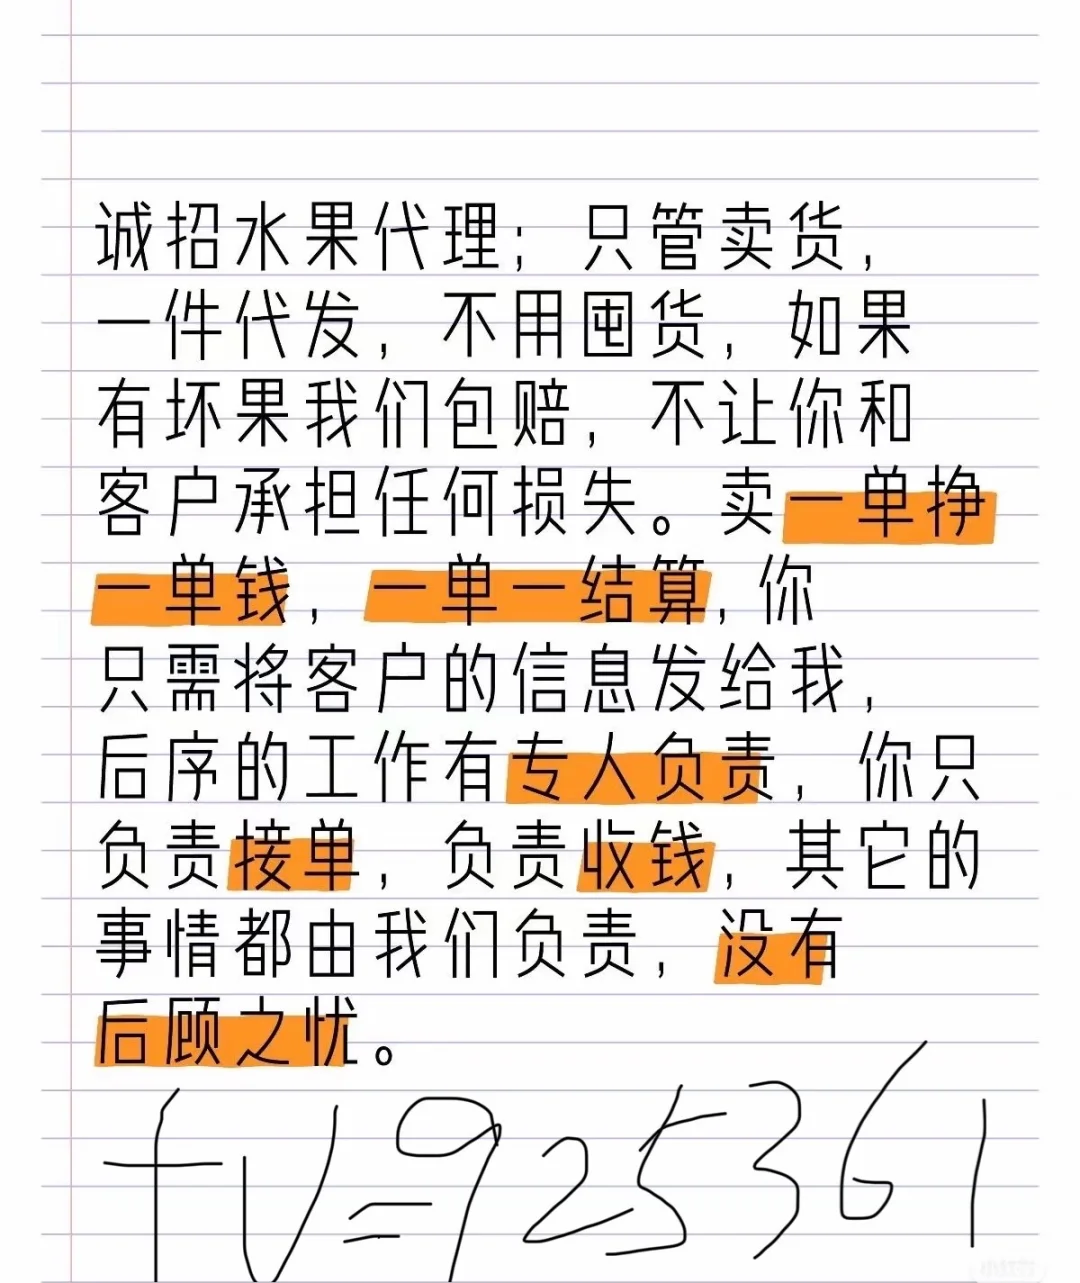 诚招水果代理；只管卖货，
一件代发，不用囤货，如果
有坏果我们包赔，不让你和
客户承担任何损失。卖一单挣
一单钱，一单一结算，你
只需将客户的信息发给我，
后序的工作有专人负责，你只
负责接单，负责收钱，其它的
事情都由我们负责，没有
后顾之忧。
fv=925361
小红书